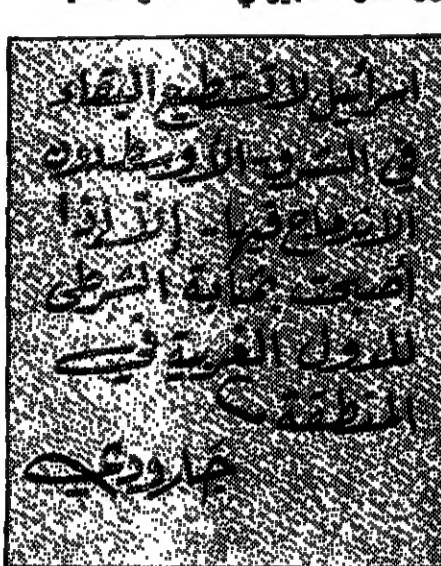 اسرائيل لا تستطيع البقاء
في الشرق الأوسط دون
الاندماج فيها - إلا إذا
أصبحت بمثابة الشرطي
للدول الغربية في
المنطقة
جارودي